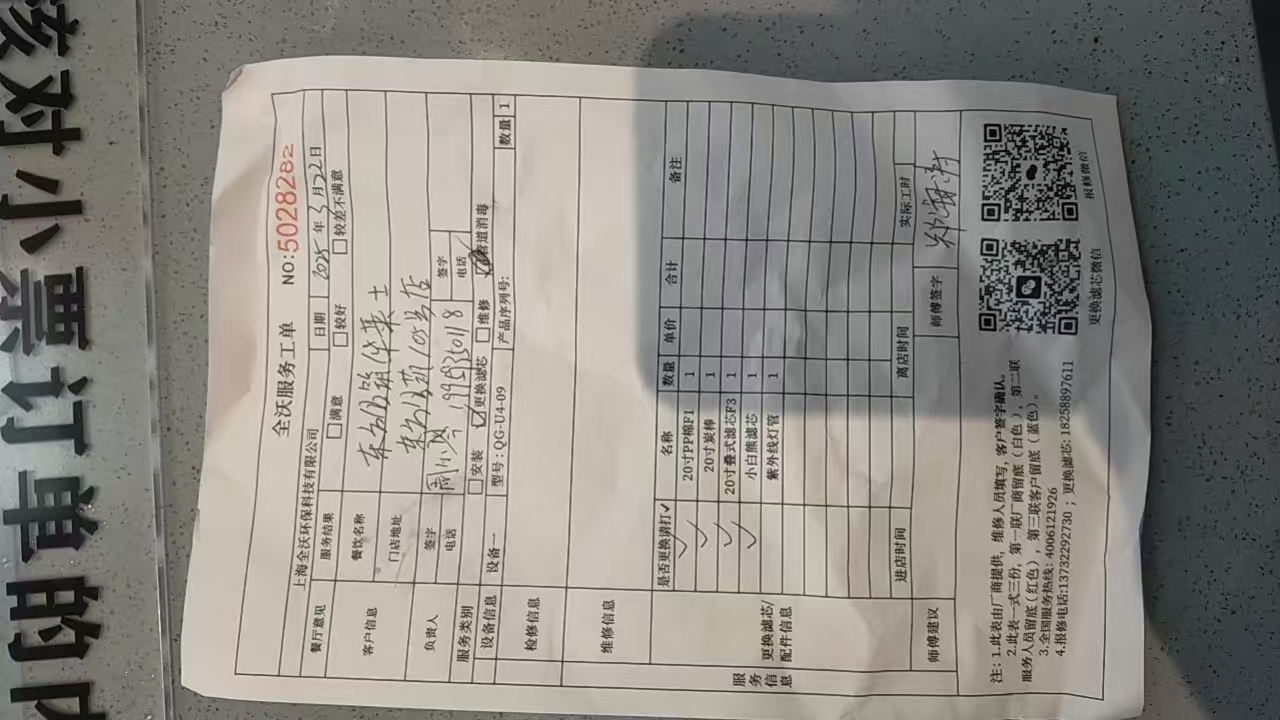 核对小票订单的内
全沃服务工单
NO:5028282
上海全沃环保科技有限公司
餐厅意见 服务结果 满意 较好 较差不满意
日期 2025年3月22日
客户信息 餐饮名称 华莱士
门店地址 105号店
负责人 签字 签字
电话 1995350118 电话
服务类别 安装 更换滤芯 维修 管道消毒
设备信息 设备一 型号:QG-U4-09 产品序列号: 数量 1
检修信息
维修信息
服务信息
更换滤芯/配件信息
是否更换请打✓ 名称 数量 单价 合计 备注
✓ 20寸PP棉F1 1
✓ 20寸炭棒 1
✓ 20寸叠式滤芯F3 1
✓ 小白熊滤芯 1
紫外线灯管 1
进店时间 离店时间 实际工时
师傅建议 师傅签字
注:1.此表由厂商提供,维修人员填写,客户签字确认。
2.此表一式三份,第一联厂商留底(白色),第二联
服务人员留底(红色),第三联客户留底(蓝色)。
3.全国服务热线:4006121926
4.报修电话:13732292730;更换滤芯:18258897611
更换滤芯微信
报修微信